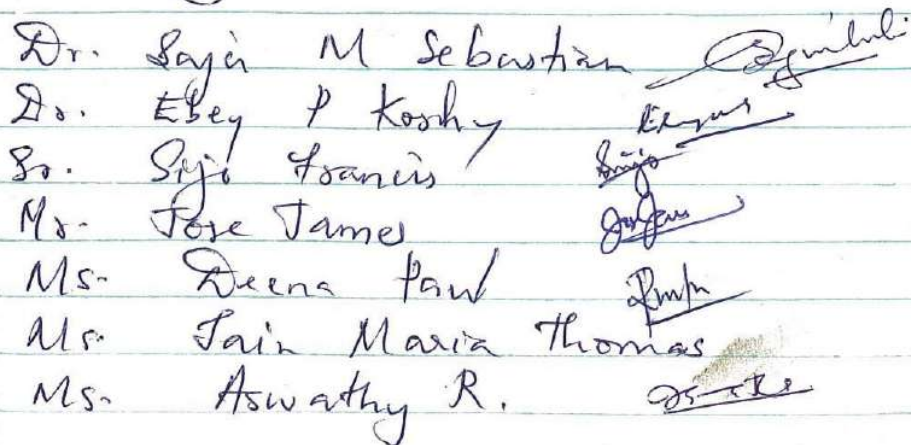 Dr. Saju M Sebastian
Dr. Ebey P Koshy
Sr. Siji Francis
Mr. Jose James
Ms. Deena Paul
Ms. Jain Maria Thomas
Ms. Aswathy R.